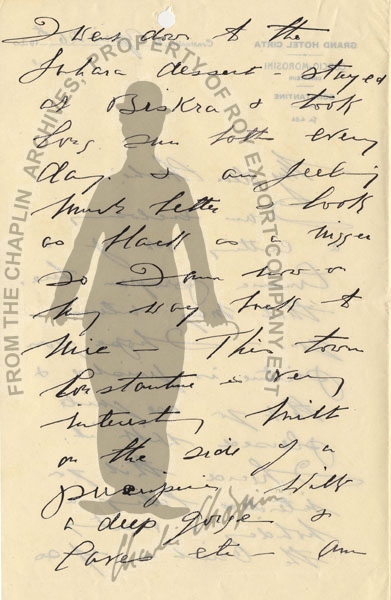 I went down to the
Sahara dessert - stayed
at Biskra & took
long sun bath every
day. & am feeling
much better look
as black as a nigger
so I am now on
my way back to
Nice - This town
Constantine is very
interesting built
on the side of a
precipice with
a deep gorge &
caves etc - am
FROM THE CHAPLIN ARCHIVES, PROPERTY OF ROY EXPORT COMPANY EST
Charlie Chaplin
GRAND HOTEL CIRTA